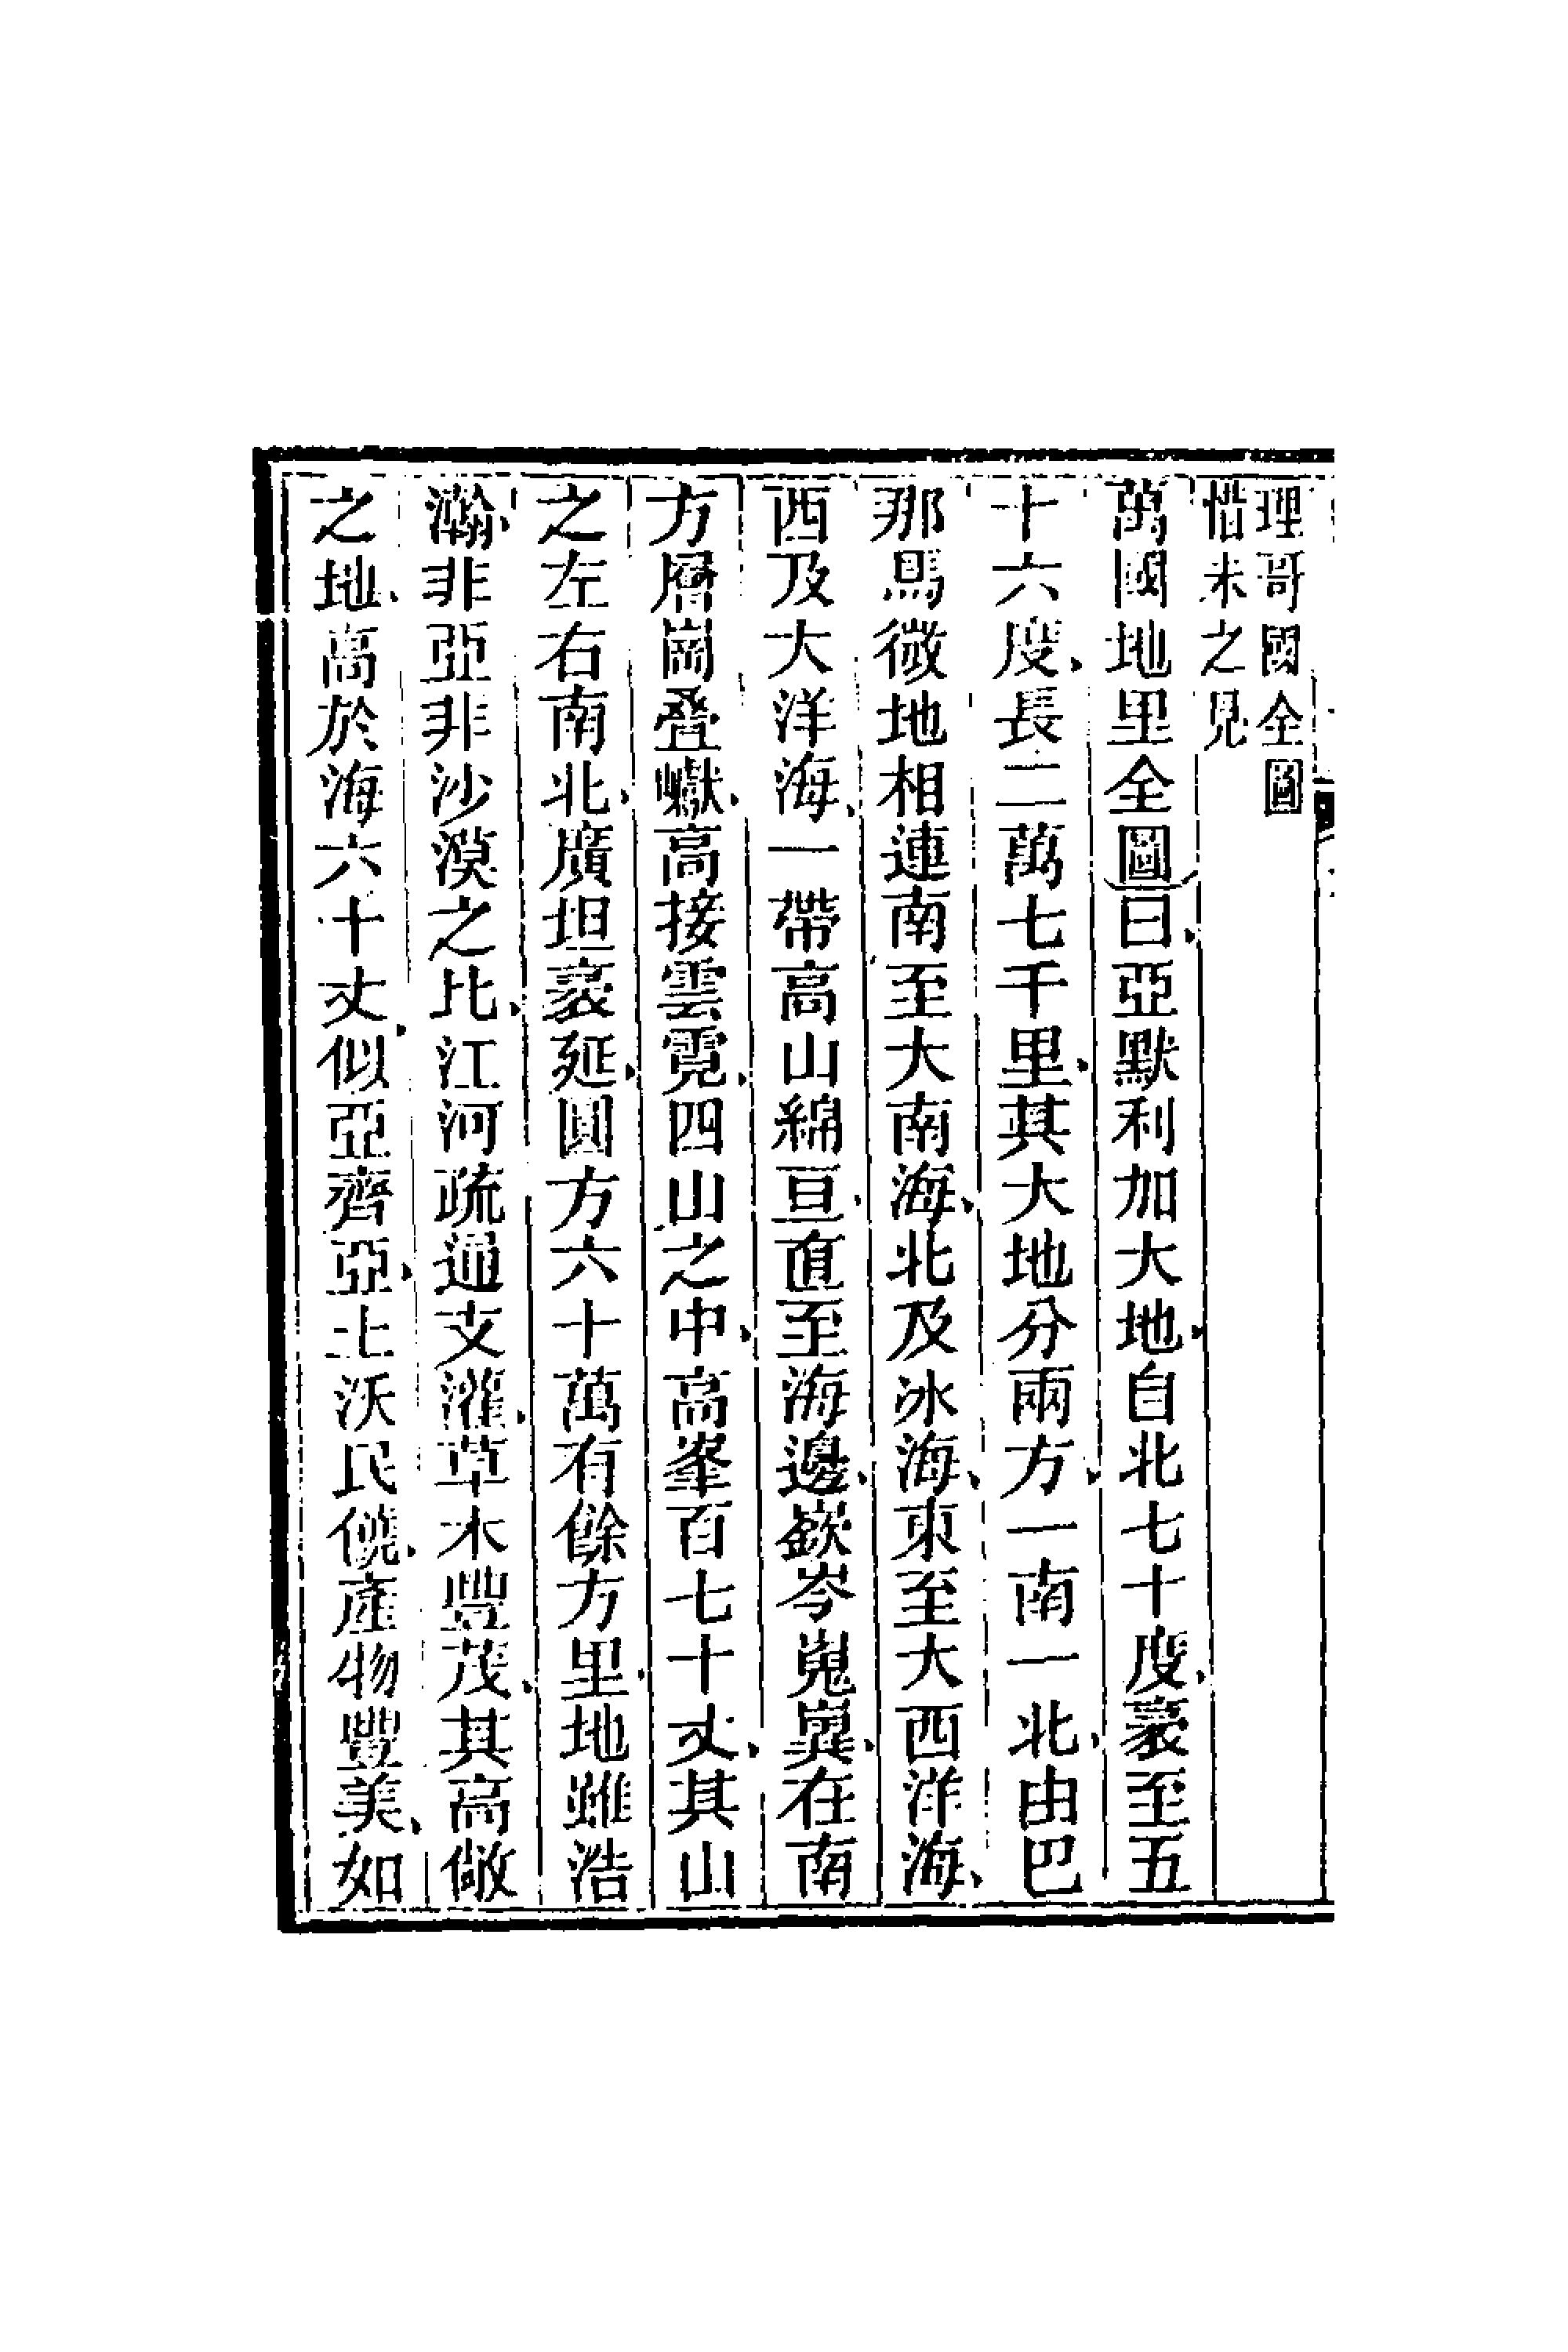 理哥國全圖
惜未之見
萬國地里全圖曰亞默利加大地自北七十度袤至五
十六度長二萬七千里其大地分兩方一南一北由巴
那馬微地相連南至大南海北及冰海東至大西洋海
西及大洋海一帶高山綿亘直至海邊嶔岑嵬㠔在南
方層崗叠巘高接雲霓四山之中高峯百七十丈其山
之左右南北廣坦袤延圓方六十萬有餘方里地雖浩
瀚非亞非沙漠之比江河疏通支灌草木豐茂其高敞
之地高於海六十丈似亞齊亞土沃民僥產物豐美如